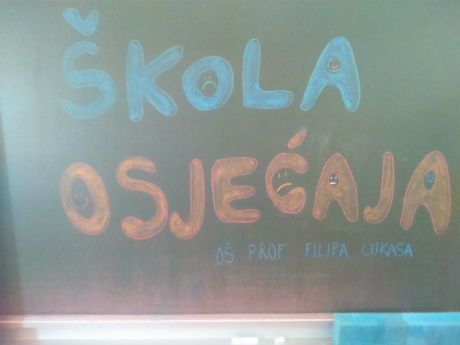 ŠKOLA
OSJEĆAJA
OŠ PROF FILIPA LUKASA